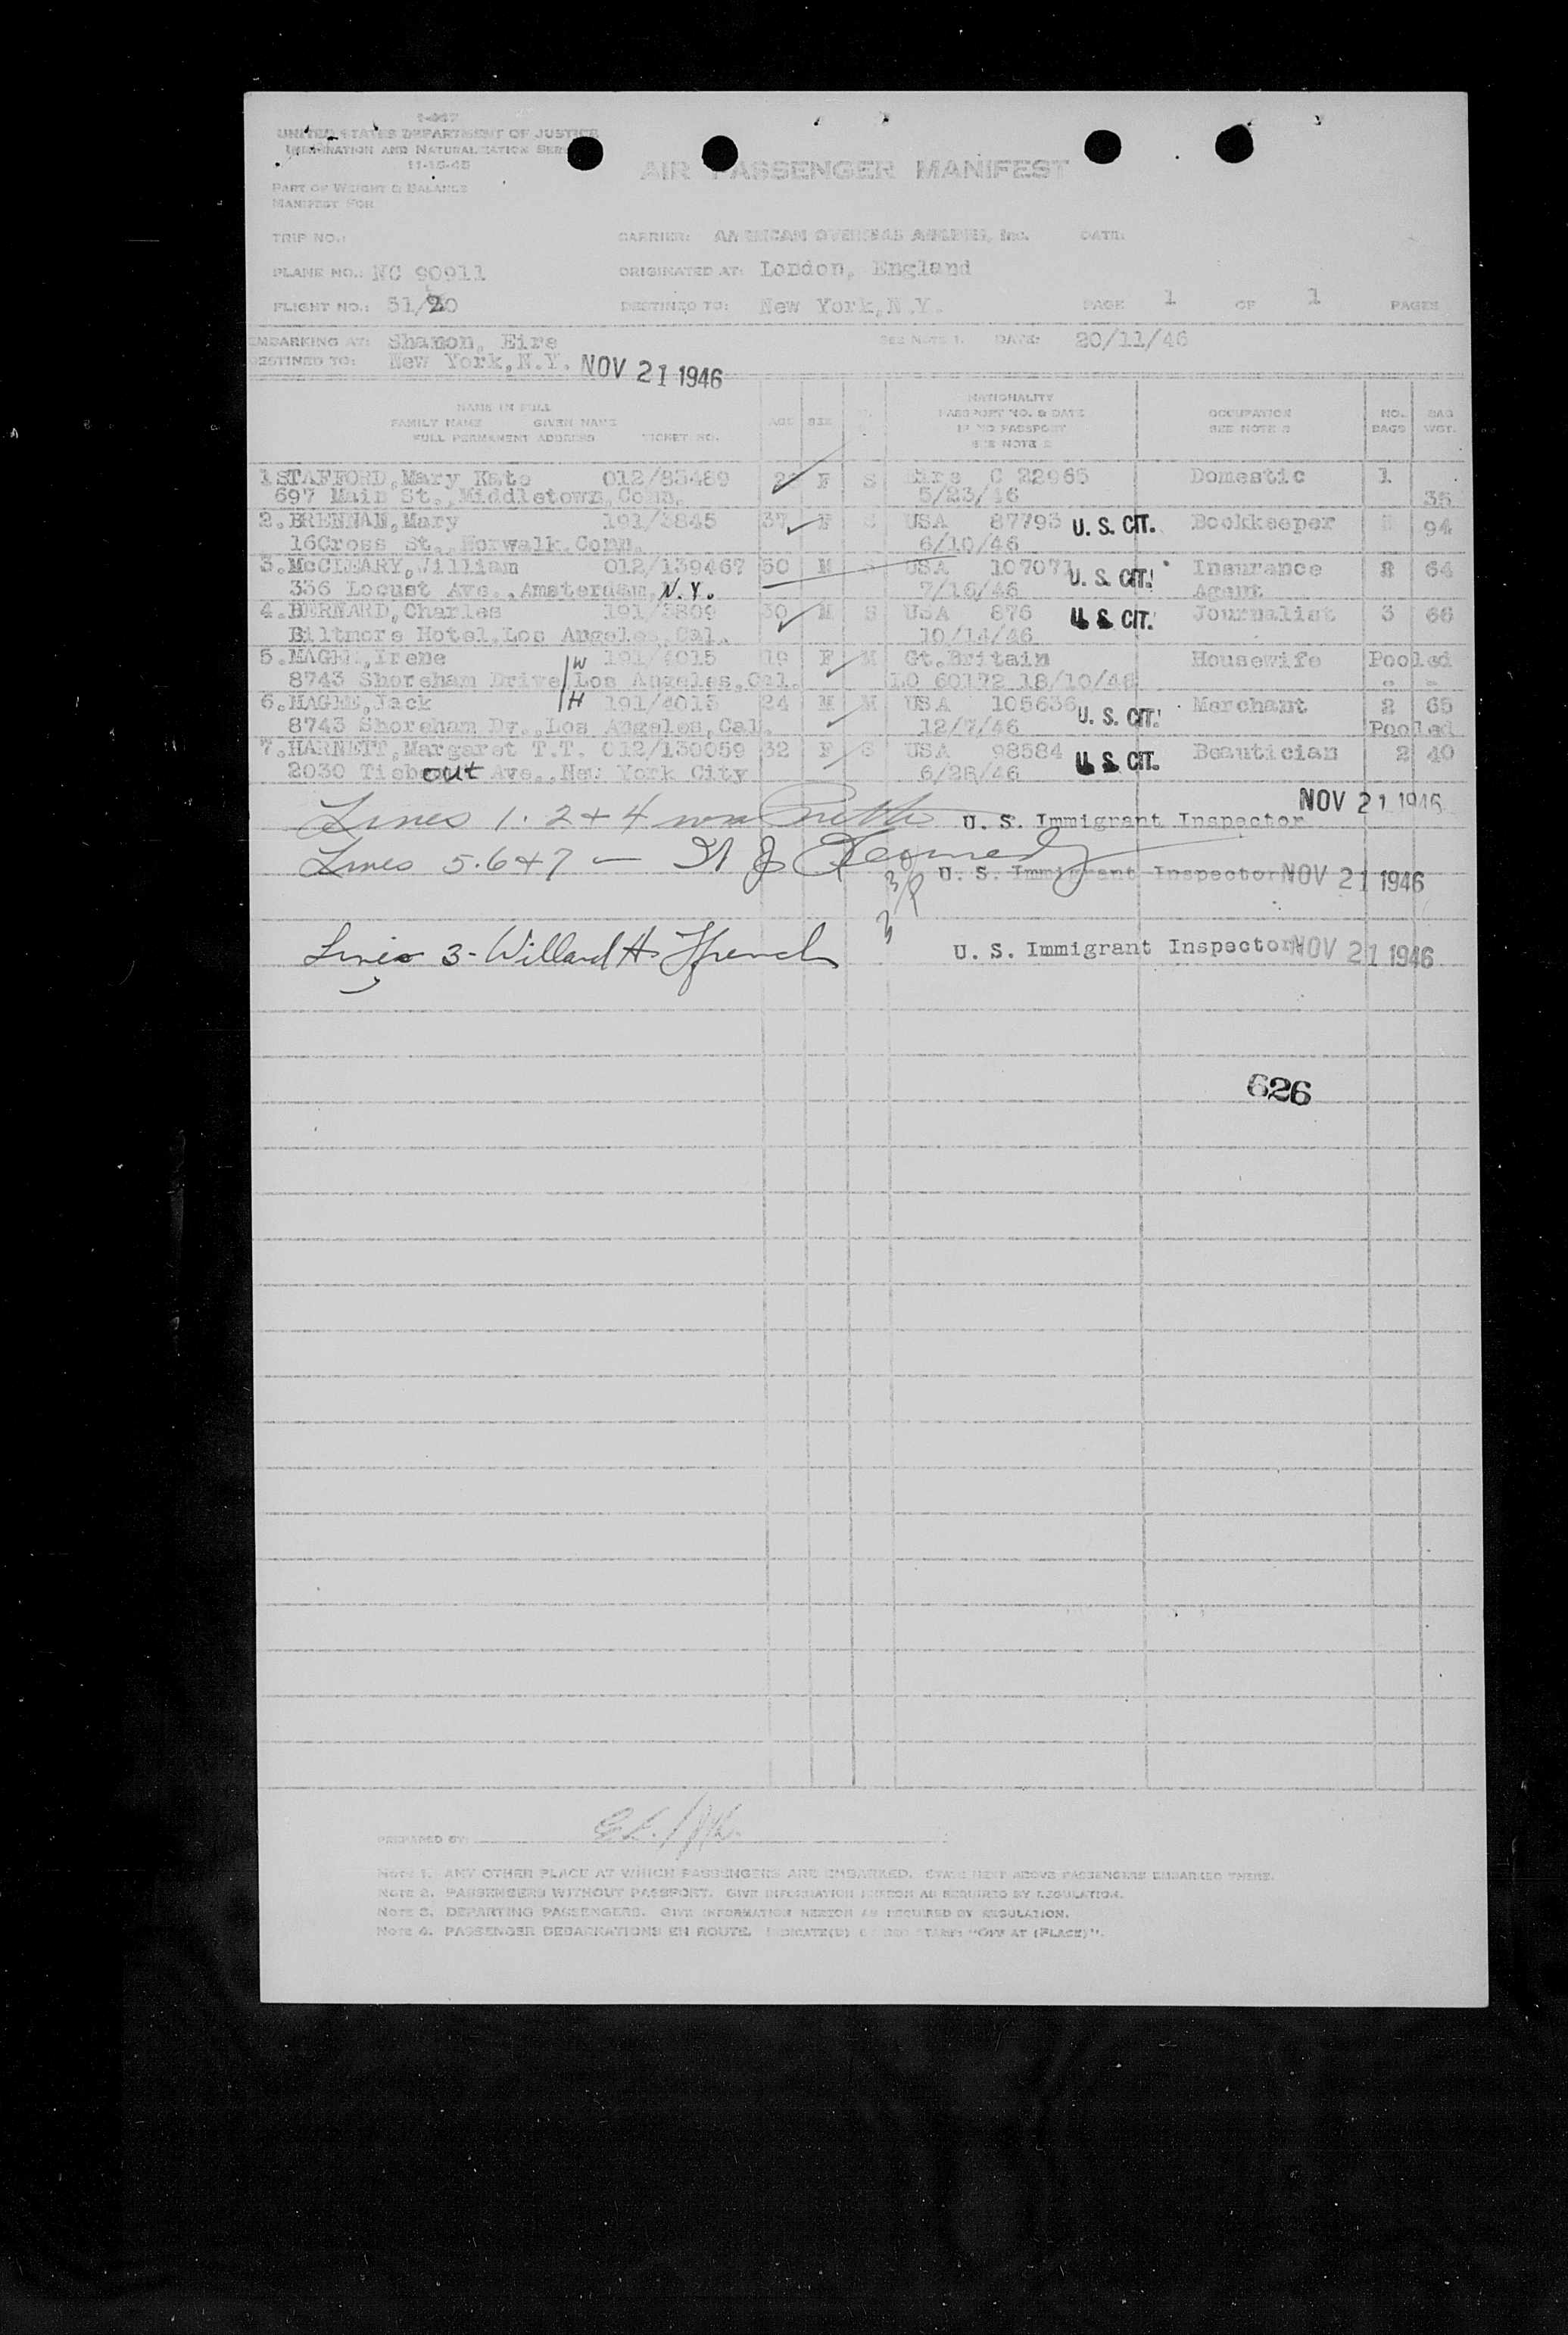 UNITED STATES DEPARTMENT OF JUSTICE
IMMIGRATION AND NATURALIZATION SERVICE
11-15-45
AIR PASSENGER MANIFEST
PART OF WEIGHT & BALANCE
MANIFEST FOR
TRIP NO.: CARRIER: AMERICAN OVERSEAS AIRLINES, INC. DATE:
PLANE NO.: NC 90911 ORIGINATED AT: London, England
FLIGHT NO.: 51/20 DESTINED TO: New York, N.Y. PAGE 1 OF 1 PAGES
EMBARKING AT: Shannon, Eire SEE NOTE 1. DATE: 20/11/46
DESTINED TO: New York, N.Y. NOV 21 1946
NAME IN FULL NATIONALITY
FAMILY NAME GIVEN NAME AGE SEX PASSPORT NO. & DATE OCCUPATION NO. BAG
FULL PERMANENT ADDRESS TICKET NO. IF NO PASSPORT SEE NOTE 3 BAGS WGT.
SEE NOTE 2
1 STAFFORD, Mary Kate 012/83489 F S Eire C 22965 Domestic 1
697 Main St., Middletown, Conn. 5/23/46 35
2. BRENNAN, Mary 191/3845 37 F S USA 87793 U. S. CIT. Bookkeeper 94
16Cross St., Norwalk, Conn. 6/10/46
3. McCLEARY, William 012/139467 50 M S USA 107071 U. S. CIT. Insurance 2 64
336 Locust Ave., Amsterdam, N.Y. 7/16/46 Agent
4. BERNARD, Charles 191/3809 30 M S USA 876 U. S. CIT. Journalist 3 66
Biltmore Hotel, Los Angeles, Cal. 10/14/46
5. MAGEE, Irene W 191/4015 19 F M Gt. Britain Housewife Pooled
8743 Shoreham Drive Los Angeles, Cal. LO 60172 18/10/46 - -
6. MAGEE, Jack H 191/4013 24 M M USA 105636 U. S. CIT. Merchant 2 65
8743 Shoreham Dr., Los Angeles, Cal. 12/7/46 Pooled
7. HARNETT, Margaret T.T. 012/130059 32 F S USA 98584 U. S. CIT. Beautician 2 40
2030 Tiebout Ave., New York City 6/28/46
NOV 21 1946
Lines 1. 2 + 4 U. S. Immigrant Inspector
Lines 5. 6 + 7 — J Kennedy U. S. Immigrant Inspector NOV 21 1946
Line 3 - Willard H French U. S. Immigrant Inspector NOV 21 1946
626
PREPARED BY:
NOTE 1. ANY OTHER PLACE AT WHICH PASSENGERS ARE EMBARKED. STATE NEXT ABOVE PASSENGERS EMBARKED THERE.
NOTE 2. PASSENGERS WITHOUT PASSPORT. GIVE INFORMATION HEREON AS REQUIRED BY REGULATION.
NOTE 3. DEPARTING PASSENGERS. GIVE INFORMATION HEREON AS REQUIRED BY REGULATION.
NOTE 4. PASSENGER DEBARKATIONS EN ROUTE. INDICATE(D) BY RED STAMP: "OFF AT (PLACE)".